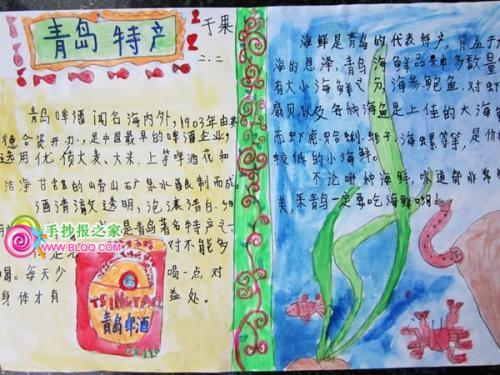 青岛 特产
于果
二.二
青岛 啤酒 闻名 海内外,1903年由英
德合资开办,是中国最早的啤酒企业,
选用优质大麦、大米、上等啤酒花和
洁净甘甜的崂山矿泉水酿制而成
酒清清澈透明,泡沫洁白、细
是青岛著名特产之一
对不能多
喝。每天少
喝一点,对
身体才有
益处。
手抄报之家
WWW.BLQQ.COM
TSINGTAO
青岛啤酒
海鲜是青岛的代表特产,
海的恩泽,青岛海鲜品种多数量
有大小海鲜之分,海参鲍鱼、对虾
扇贝以及各种海鱼是上佳的大海
而虾虎、蛤蜊、蛏子、海螺等等,是价
较低的小海鲜。
不论哪种海鲜,味道都非常
美,来青岛一定要吃海鲜哟!